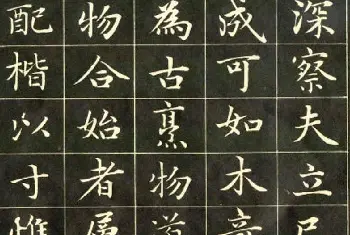 深察夫立
成可如木
為古烹物道
物合始者
配楷以寸惟